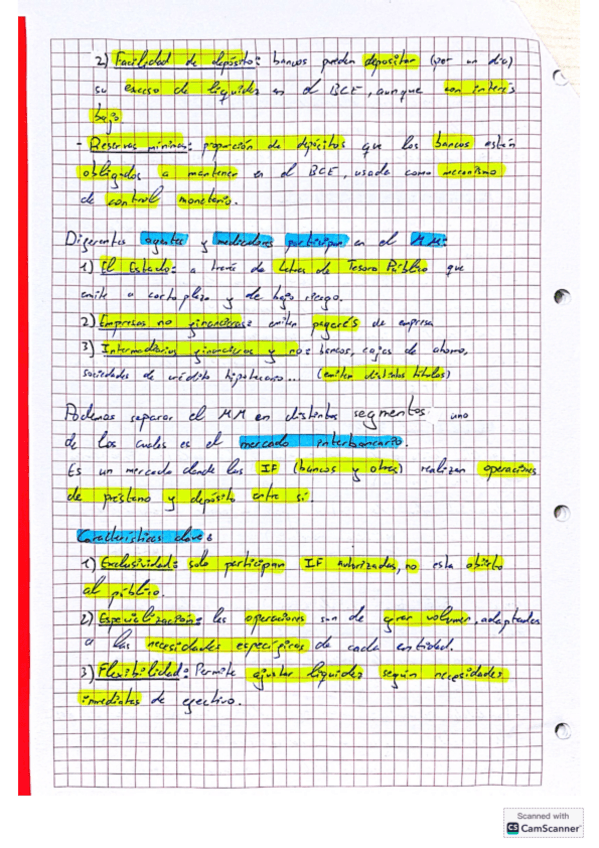 2) Facilidad de depósito: bancos pueden depositar (por un día)
su exceso de liquidez en el BCE, aunque con interés
bajo.
- Reservas mínimas: proporción de depósitos que los bancos están
obligados a mantener en el BCE, usada como mecanismo
de control monetario.
Diferentes agentes y mediadores participan en el MM:
1) El Estado: a través de Letras de Tesoro Público que
emite a corto plazo y de bajo riesgo.
2) Empresas no financieras: emiten pagarés de empresa
3) Intermediarios financieros y no: bancos, cajas de ahorro,
sociedades de crédito hipotecario... (emiten distintos títulos)
Podemos separar el MM en distintos segmentos uno
de los cuales es el mercado interbancario.
Es un mercado donde las IF (bancos y otras) realizan operaciones
de préstamo y depósito entre sí.
Características clave:
1) Exclusividad: solo participan IF autorizadas, no esta abierto
al público.
2) Especialización: las operaciones son de gran volumen, adaptadas
a las necesidades específicas de cada entidad.
3) Flexibilidad: Permite ajustar liquidez según necesidades
inmediatas de efectivo.
Scanned with
CS CamScanner